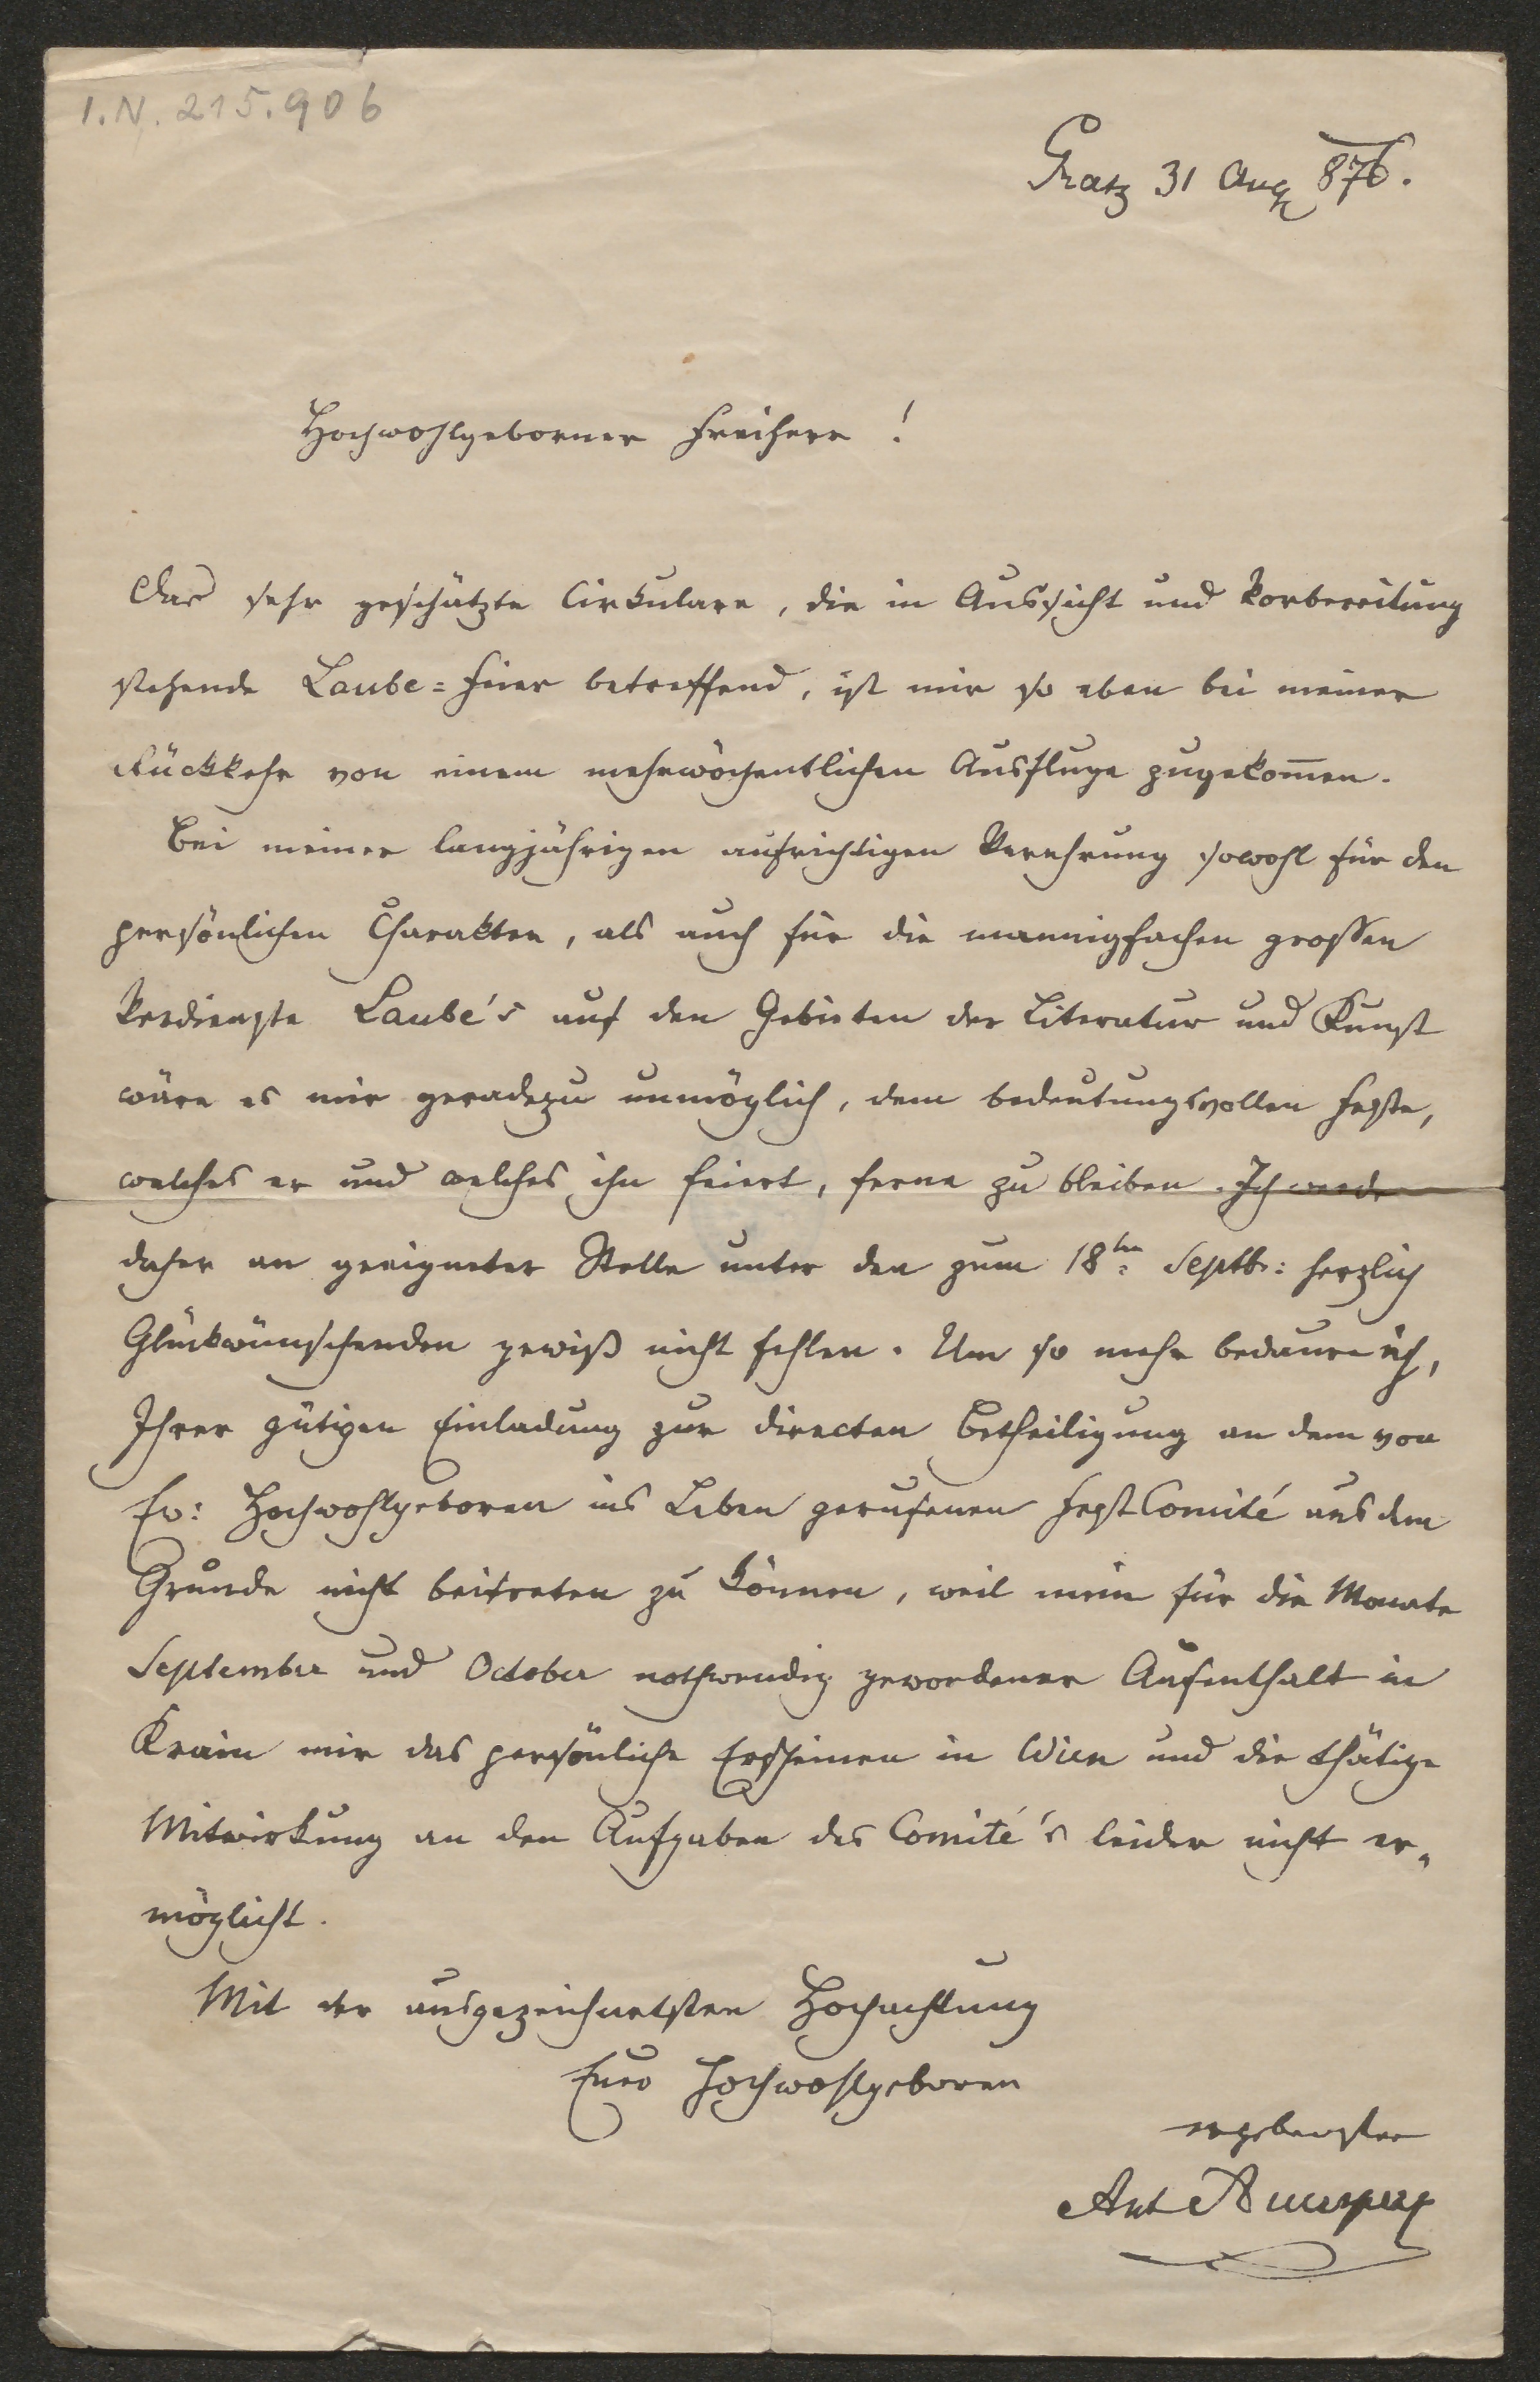 I.N. 215.906
Gratz 31 Aug 876.
Hochwohlgeborner Freiherr!
Das sehr geschätzte Cirkulare, die in Aussicht und Vorbereitung
stehende Laube=Feier betreffend, ist mir so eben bei meiner
Rückkehr von einem mehrwöchentlichen Ausfluge zugekom̅en.
Bei meiner langjährigen aufrichtigen Verehrung sowohl für den
persönlichen Charakter, als auch für die mannigfachen grossen
Verdienste Laube's auf den Gebieten der Literatur und Kunst
wäre es mir geradezu unmöglich, dem bedeutungsvollen Feste,
welches er und welches ihn feiert, ferne zu bleiben. Ich werde
daher an geeigneter Stelle unter den zum 18ten Septb: herzlich
Glückwünschenden gewiß nicht fehlen. Um so mehr bedaure ich,
Ihrer gütigen Einladung zur directen Betheiligung an dem von
Ew: Hochwohlgeboren ins Leben gerufenen Fest Comité aus dem
Grunde nicht beitreten zu können, weil mein für die Monate
September und October nothwendig gewordener Aufenthalt in
Krain mir das persönliche Erscheinen in Wien und die thätige
Mitwirkung an den Aufgaben des Comité's leider nicht er=
möglicht.
Mit der ausgezeichnetsten Hochachtung
Euer Hochwohlgeboren
ergebenster
Ant Auersperg